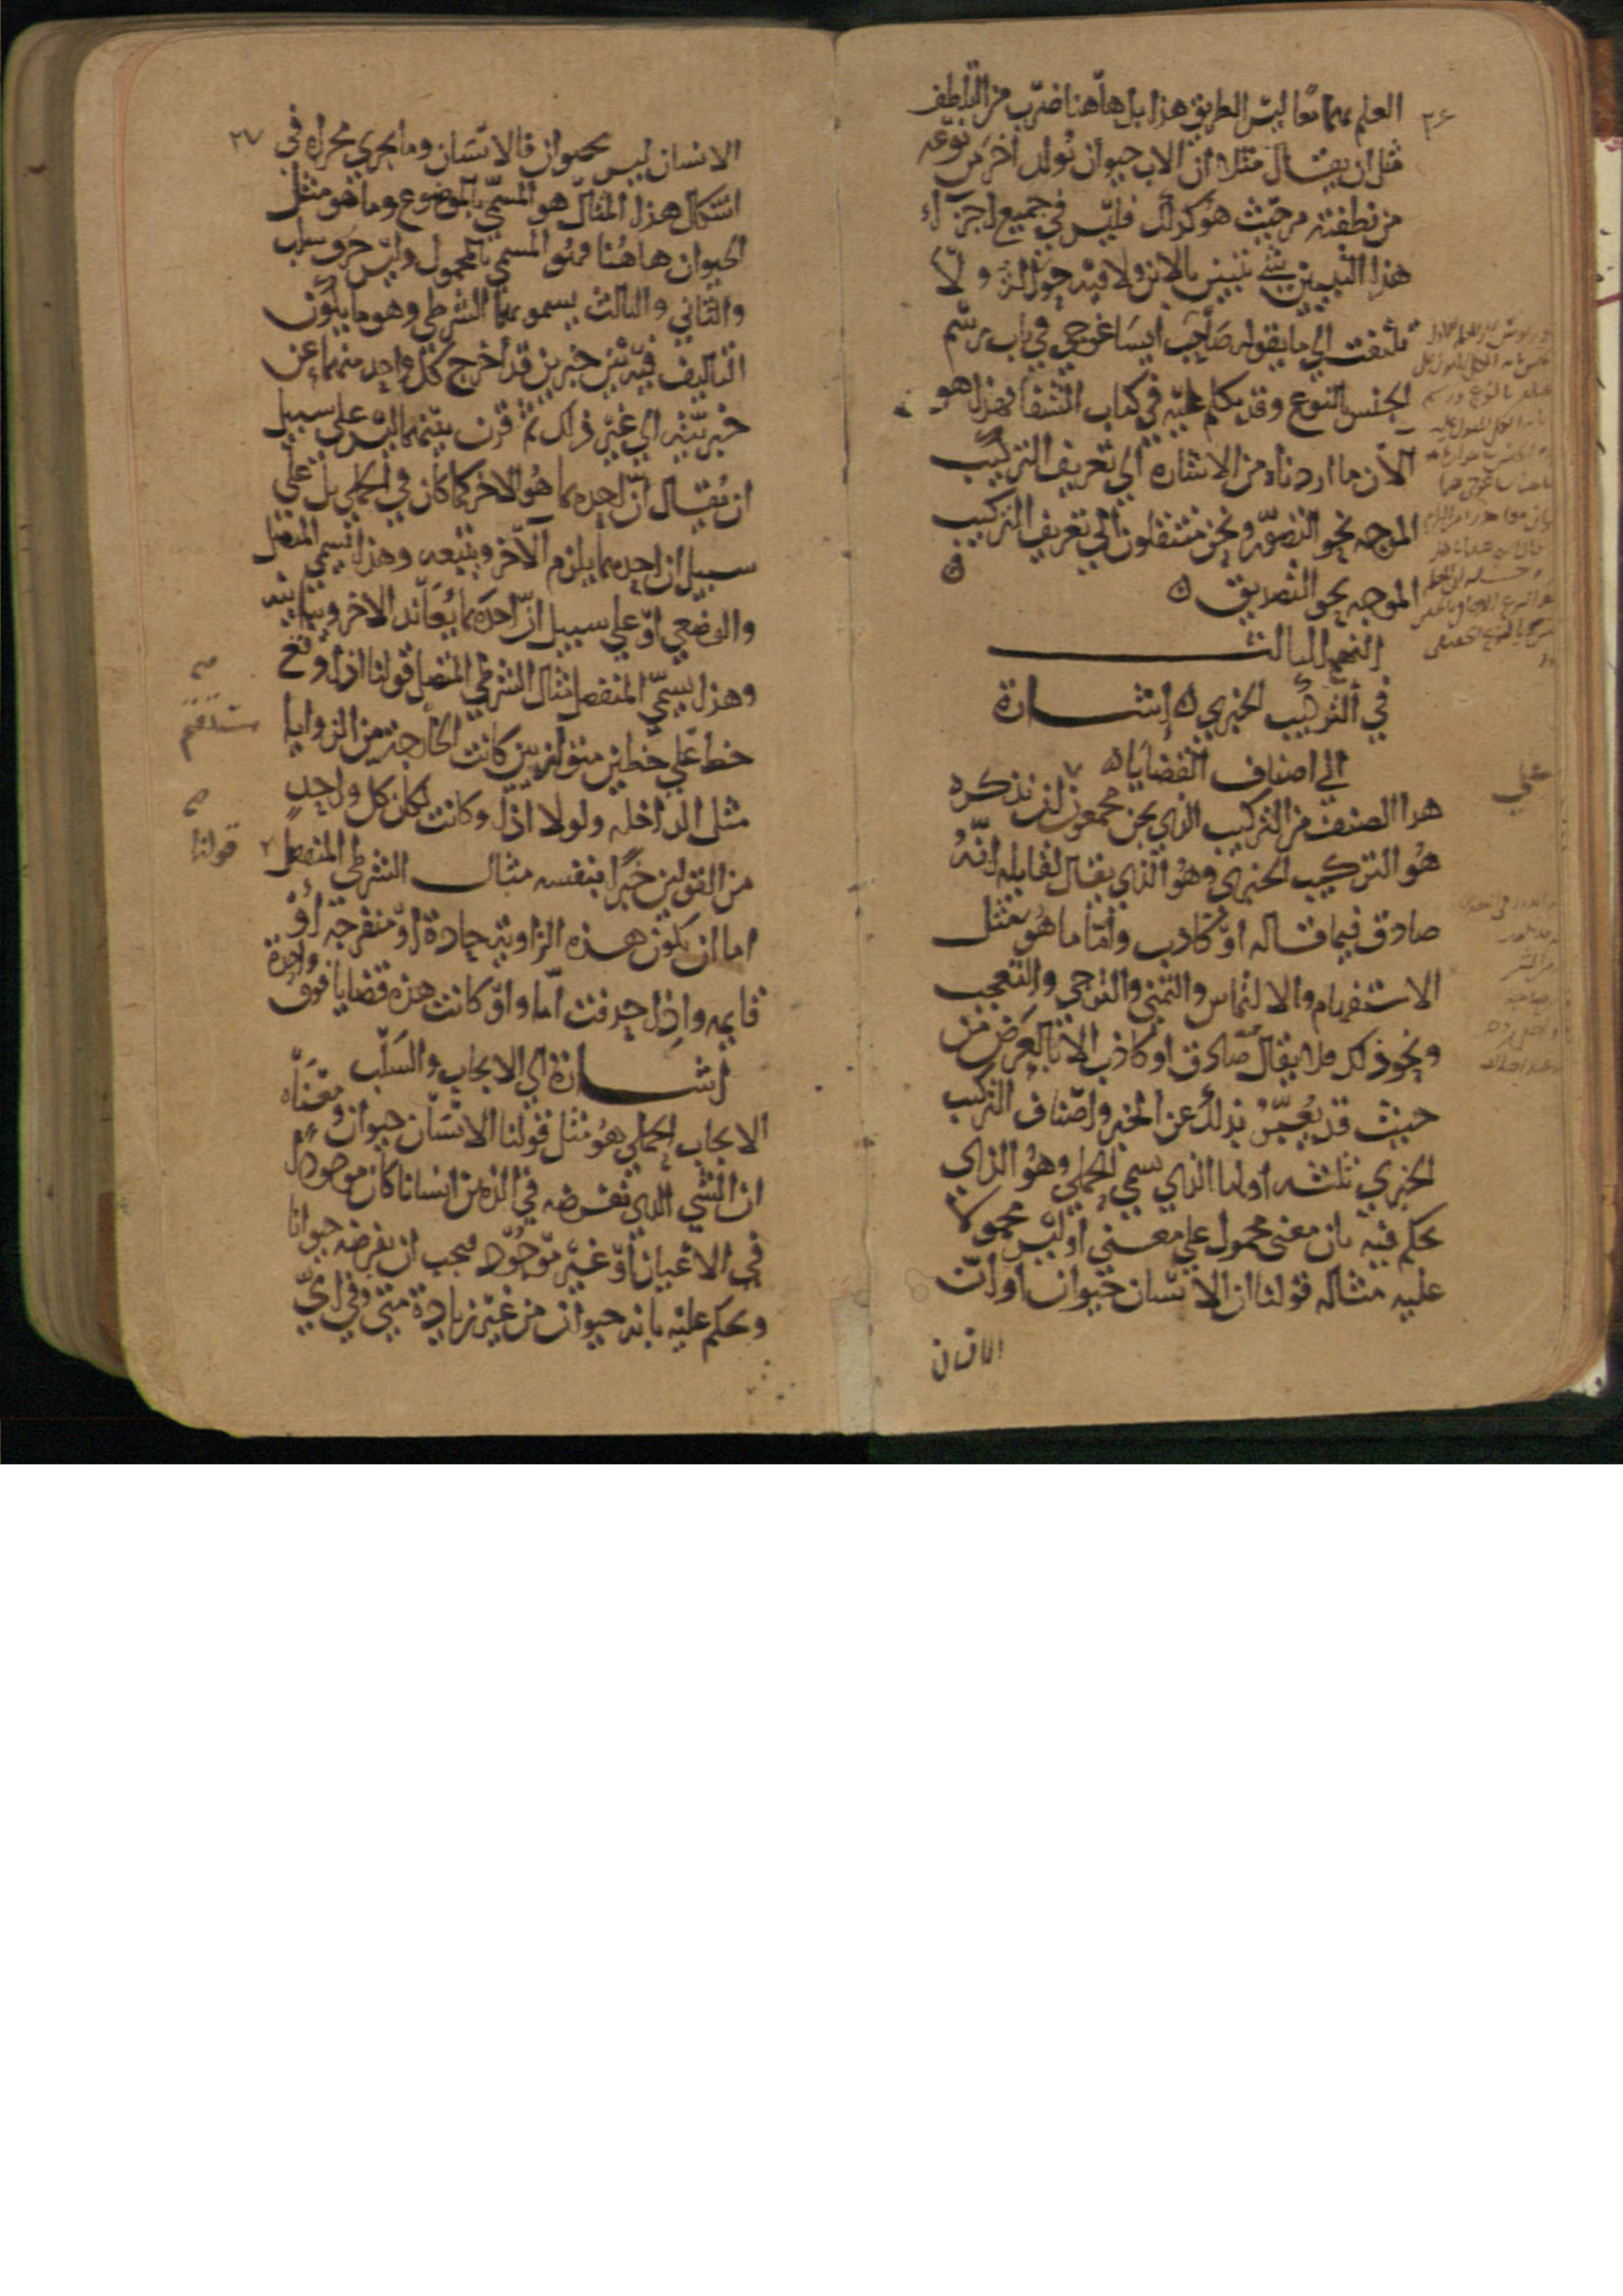 ٢٦
العلم بهما معا ليس الطريق هذا بل هاهنا ضرب من التلطف
مثل ان يقال مثلا ان الاب حيوان يولد آخر من نوعه
من نطفته من حيث هو كذلك فليس في جميع اجزاء
هذا التبيين شيء يتبين بالابن ولا فيه حوالة ولا
تلتفت الى ما يقوله صاحب ايساغوجي في باب رسم
الجنس بالنوع وقد تكلم عليه في كتاب الشفا فهذا هو
الآن ما اردناه من الاشارة الى تعريف التركيب
الموجه نحو التصور ونحن منتقلون الى تعريف التركيب
الموجه نحو التصديق ه
النهج الثالث
في التركيب الخبري ه إشارة
الى اصناف القضايا ه
هذا الصنف من التركيب الذي نحن مجمعون ان نذكره
على
هو التركيب الخبري وهو الذي يقال لقايله انه
صادق فيما قاله او كاذب وأمّا ما هو مثل
الاستفهام والالتماس والتمني والترجي والتعجب
ونحو ذلك فلا يقال صادق او كاذب الا بالعرض من
حيث قد يُعبّر بذلك عن الخبر واصناف التركيب
الخبري ثلثه اولها الذي يسمى الحملي وهو الذي
يحكم فيه بان معنى محمول على معنى او ليس محمولا
عليه مثاله قولنا ان الانسان حيوان او ان
الانسان
٢٧
الانسان ليس بحيوان فالانسان وما يجري مجراه في
اشكال هذا المثال هو المسمى بالموضوع وما هو مثل
الحيوان هاهنا فهو المسمى بالمحمول وليس حرف سلب
والثاني والثالث يسمونهما الشرطي وهو ما يكون
التاليف فيه بين خبرين قد أخرج كل واحد منهما عن
خبريته الى غير ذلك ثم قرن بينهما ليس على سبيل
ان يقال ان احدهما هو الآخر كما كان في الحملي بل على
سبيل ان احدهما يلزم الآخر ويتبعه وهذا يسمى المتصل
والوضعي او على سبيل ان احدهما يعاند الاخر ويباينه
وهذا يسمى المنفصل مثال الشرطي المتصل قولنا اذا وقع
خط على خطين متوازيين كانت الخارجة من الزوايا
مثل الداخله ولولا اذا وكانت لكان كل واحد
من القولين خبرا بنفسه مثال الشرطي المنفصل
قولنا
اما ان يكون هذه الزاوية حادة او منفرجة أو
قايمه واذا حذفت امّا واو كانت هذه قضايا فوق واحدة
إشارة الى الايجاب والسلب
الايجاب الحملي هو مثل قولنا الانسان حيوان ومعناه
ان الشي الذي نفرضه في الذهن انسانا كان موجودا
في الاعيان او غير موجود فيجب ان نفرضه حيوانا
ونحكم عليه بانه حيوان من غير زيادة متى وفي ايّ